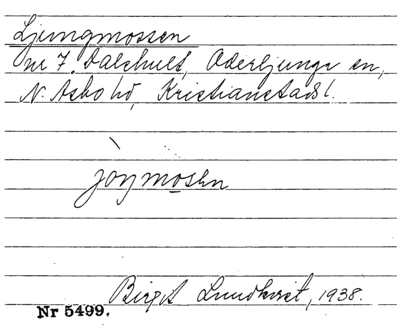 Ljungmossen
nr 7. Dalshult, Oderljunga sn,
N. Åsbo hd, Kristianstads l.
jòŋmosen
Birgit Lundkvist, 1938.
Nr 5499.